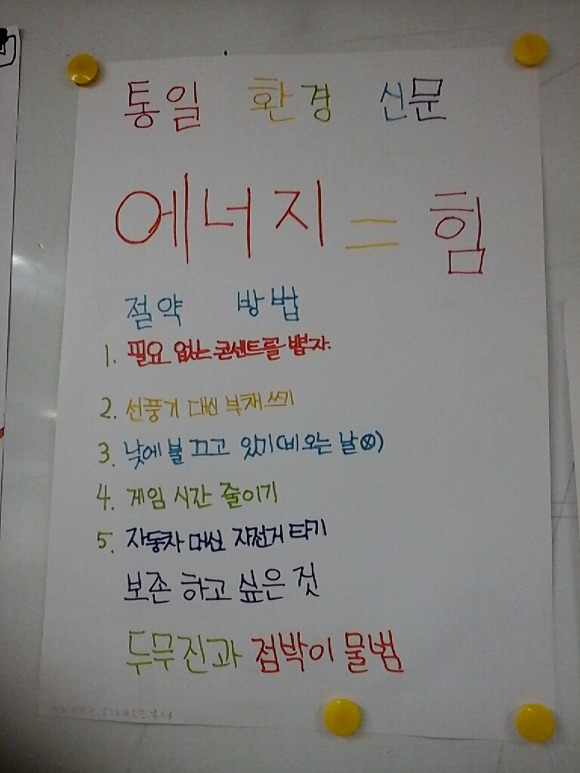 통일 환경 신문
에너지 = 힘
절약 방법
1. 필요 없는 콘센트를 뽑자.
2. 선풍기 대신 부채쓰기
3. 낮에 불 끄고 있기(비오는 날ⓧ)
4. 게임 시간 줄이기
5. 자동차 대신 자전거 타기
보존 하고 싶은 것
두무진과 점박이 물범